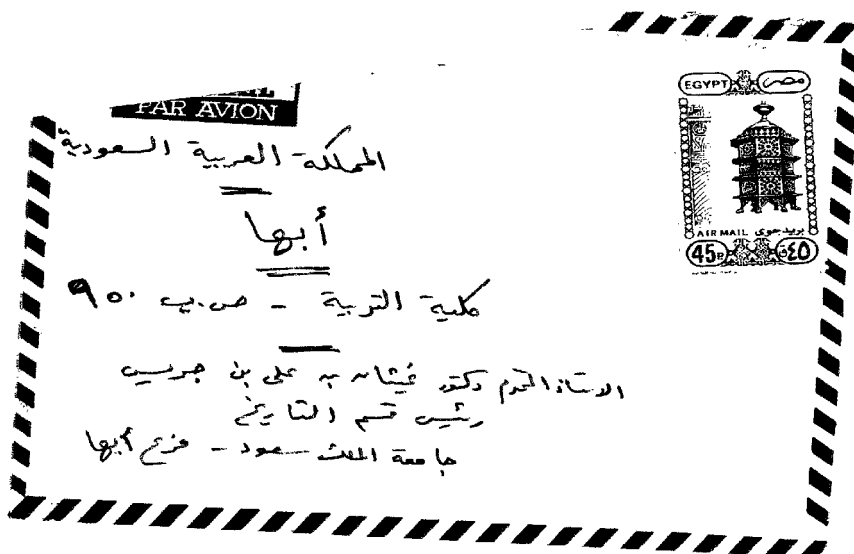 EGYPT مصر
PAR AVION
AIR MAIL بريد جوى
45P ٤٥ق
المملكة العربية السعودية
أبها
كلية التربية - ص.ب ٩٥٠
الاستاذ المحترم دكتور غيثان بن على بن جريس
رئيس قسم التاريخ
جامعة الملك سعود - فرع أبها